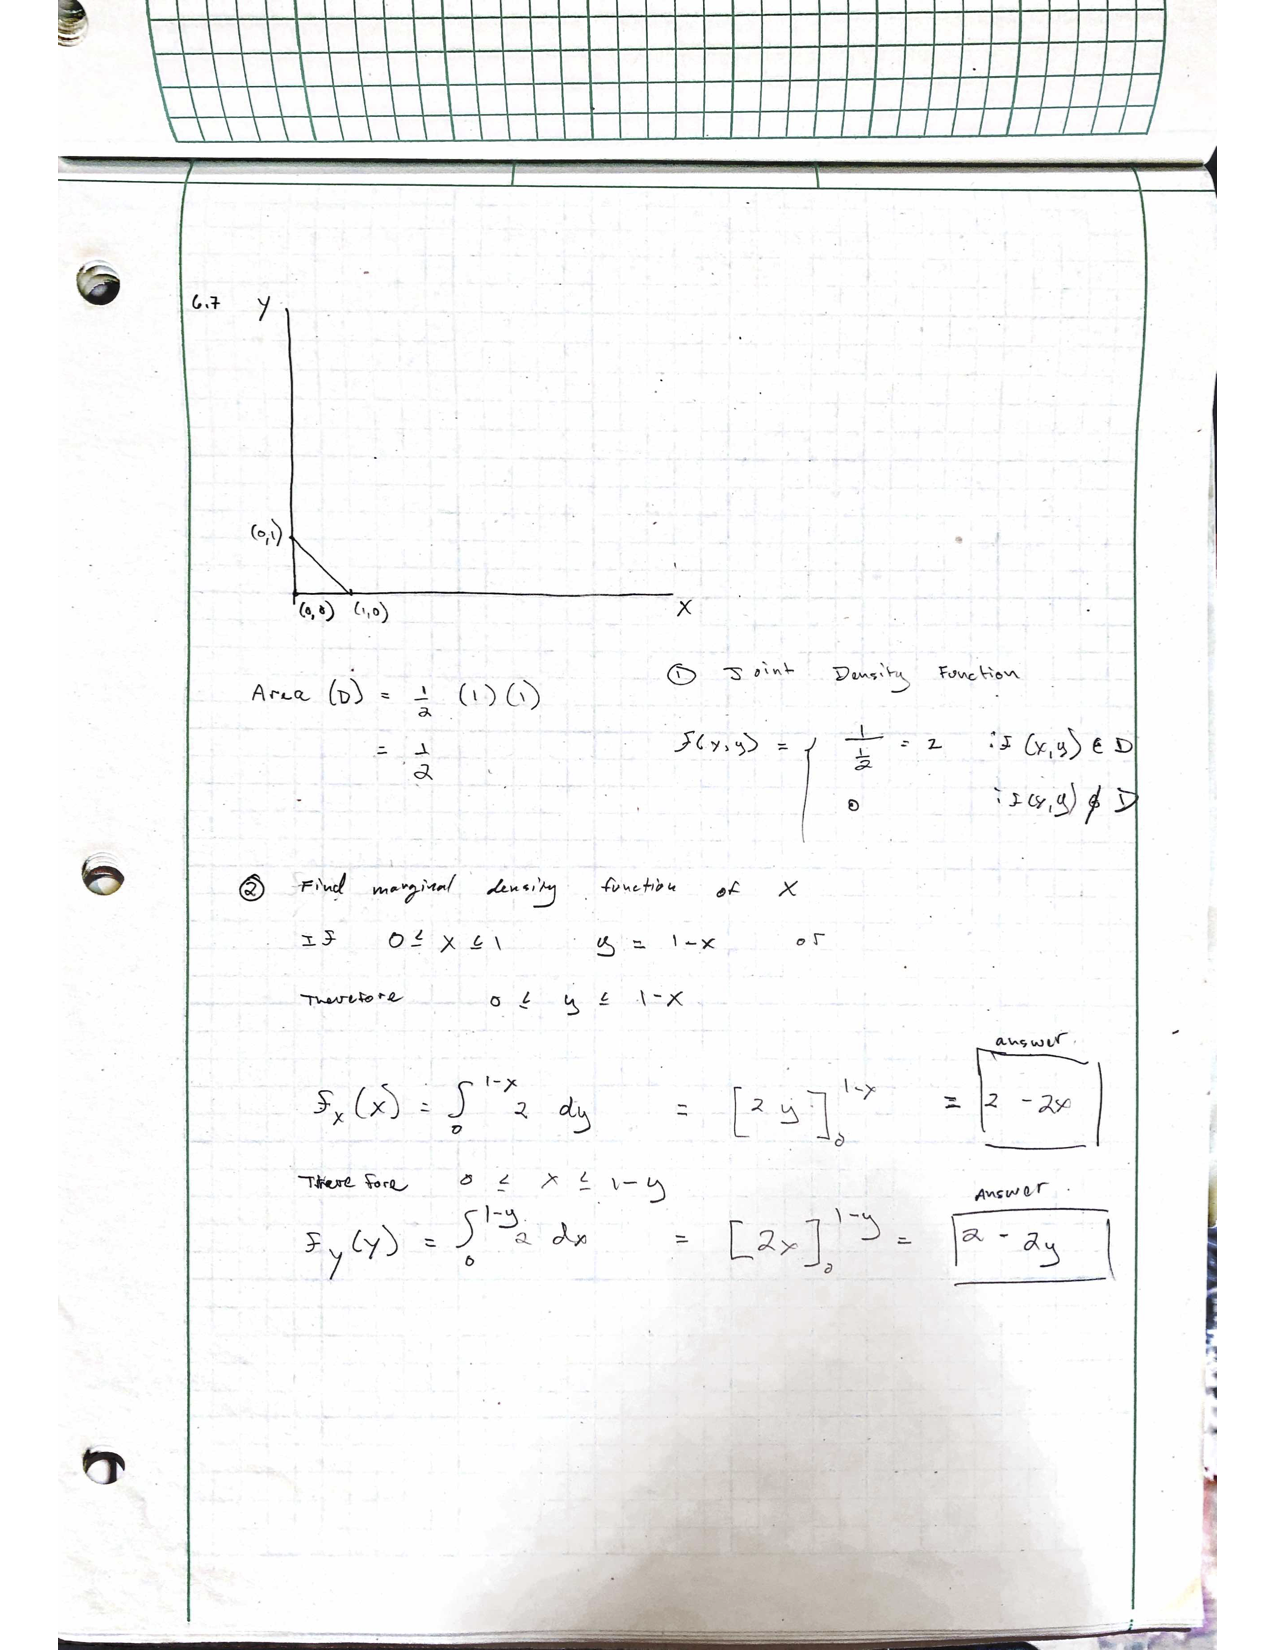 6.7 Y
(0,1)
(0,0) (1,0) X
① Joint Density Function
Area (D) = 1/2 (1)(1)
= 1/2
f(x,y) = { 1/(1/2) = 2 if (x,y) ∈ D
0 if (x,y) ∉ D
② Find marginal density function of X
If 0 ≤ x ≤ 1 y = 1-x or
Therefore 0 ≤ y ≤ 1-x
answer.
f_x(x) = ∫_0^{1-x} 2 dy = [2y]_0^{1-x} = 2 - 2x
Therefore 0 ≤ x ≤ 1-y
Answer.
f_y(y) = ∫_0^{1-y} 2 dx = [2x]_0^{1-y} = 2 - 2y